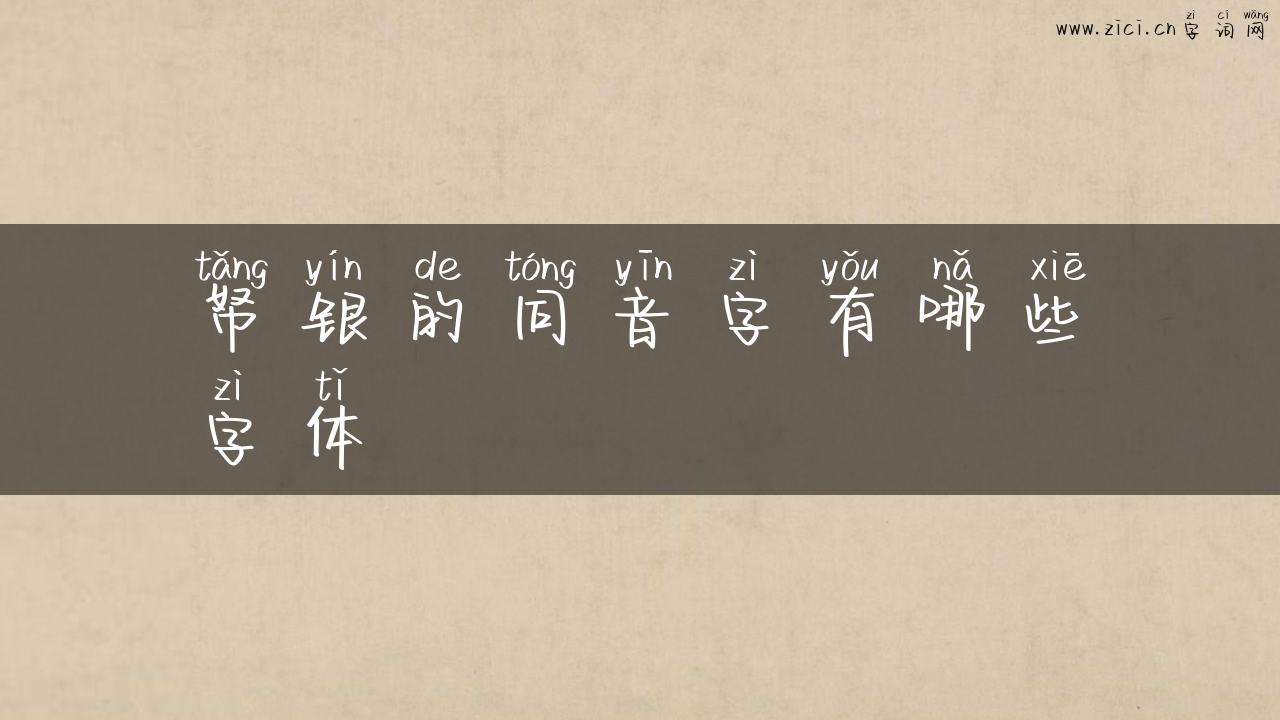 zì cí wǎng
www.zici.cn 字词网
tǎng yín de tóng yīn zì yǒu nǎ xiē
帑银的同音字有哪些
zì tǐ
字体